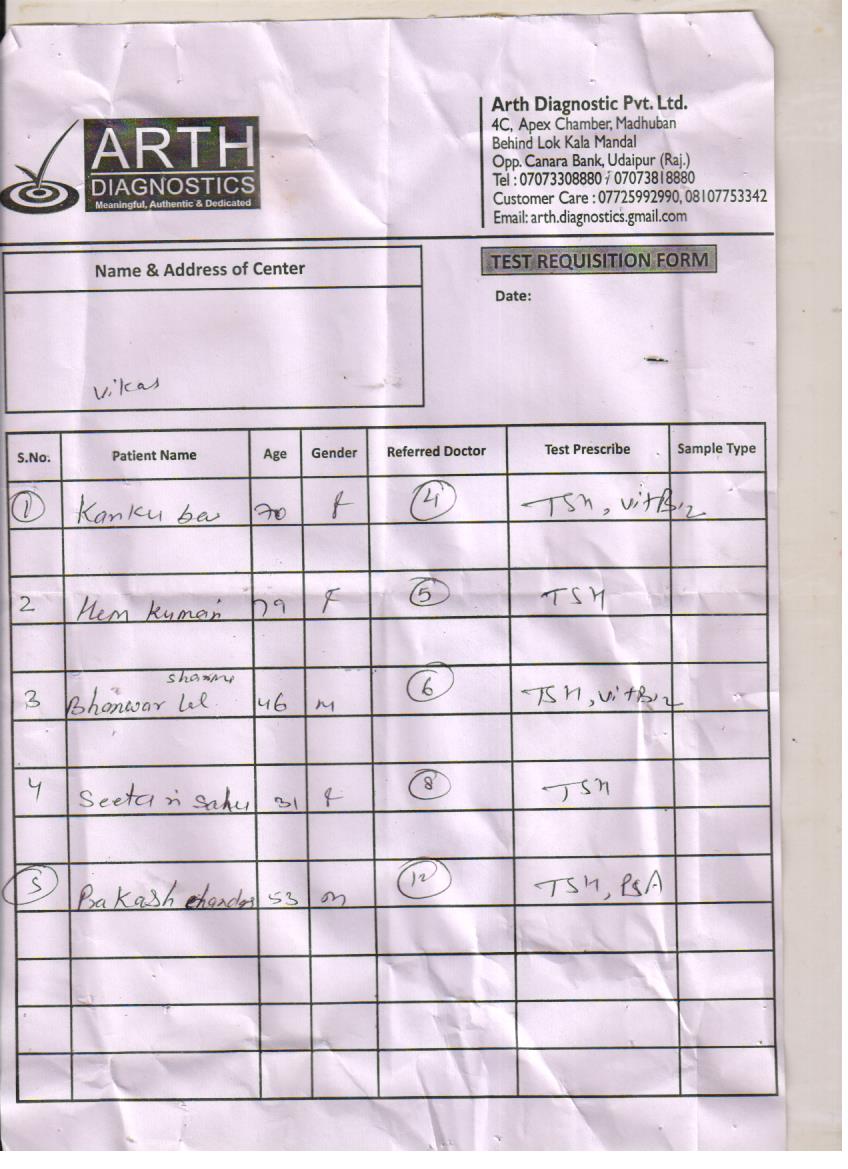 ARTH
DIAGNOSTICS
Meaningful, Authentic & Dedicated
Arth Diagnostic Pvt. Ltd.
4C, Apex Chamber, Madhuban
Behind Lok Kala Mandal
Opp. Canara Bank, Udaipur (Raj.)
Tel : 07073308880 / 07073818880
Customer Care : 07725992990, 08107753342
Email: arth.diagnostics.gmail.com
Name & Address of Center
TEST REQUISITION FORM
Date:
Vikas
S.No. Patient Name Age Gender Referred Doctor Test Prescribe Sample Type
1 Kanku 70 F 4 TSH, vitB12
2 Hem Kumari 79 F 5 TSH
Sharma
3 Bhanwar lal 46 M 6 TSH, vitB12
4 Seeta Sahu 31 F 8 TSH
5 Pakash chandra 53 M 12 TSH, PSA